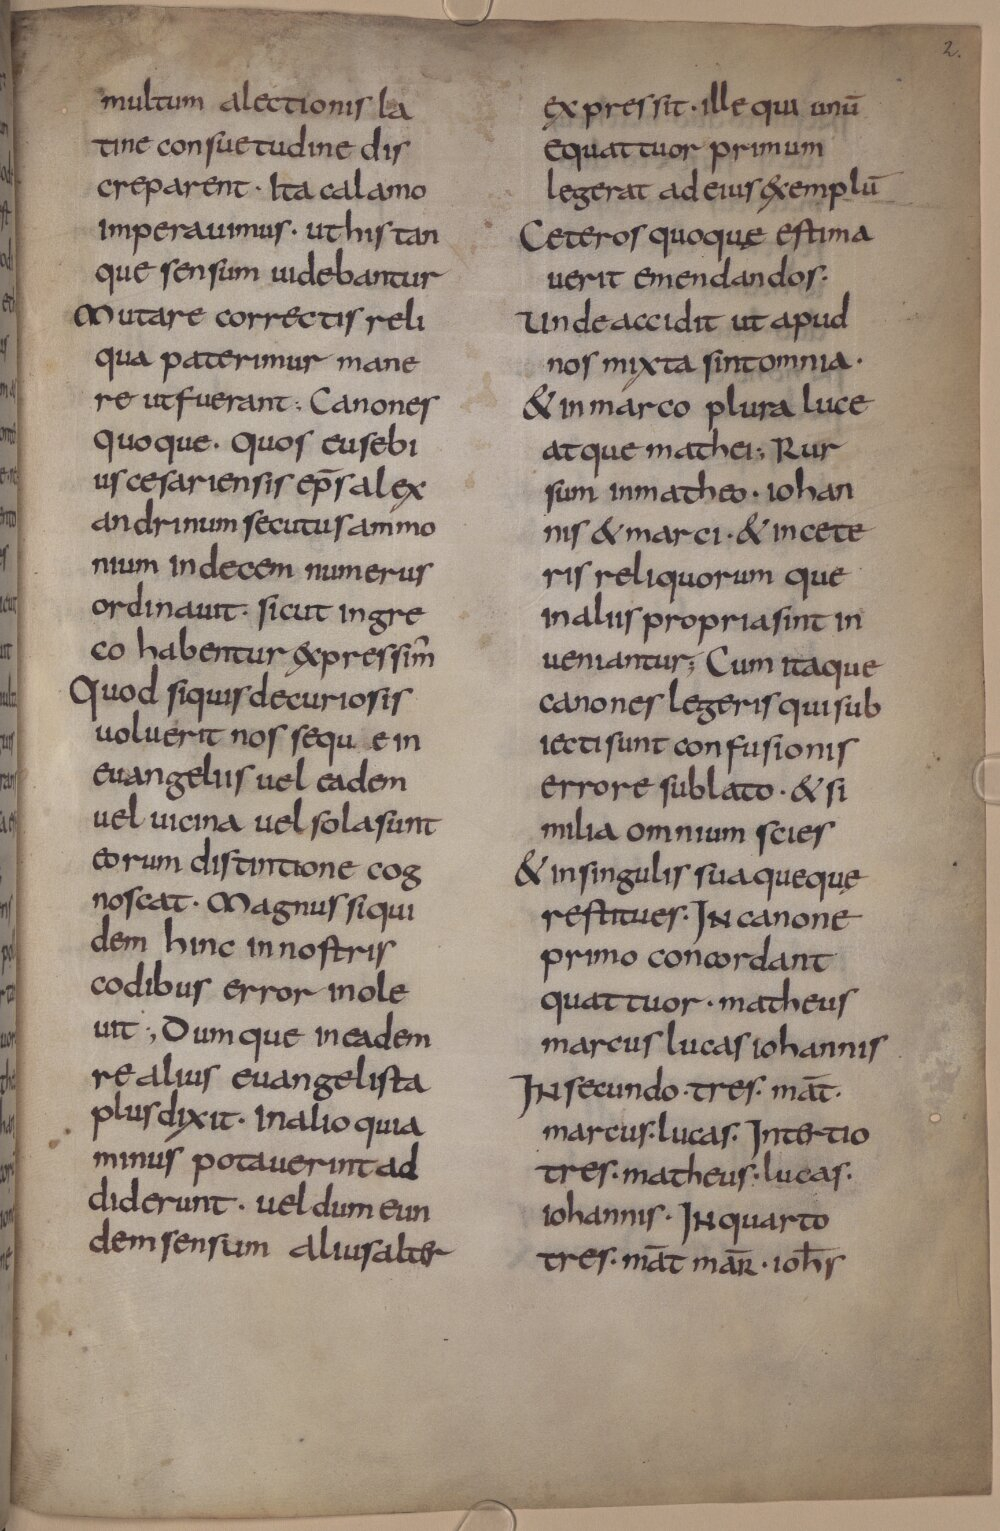 2.
multum alectionis la
tine consuetudine dis
creparent · Ita calamo
imperauimus · ut his tan
que sensum uidebantur
Mutare correctis reli
qua paterimur mane
re ut fuerant ; Canones
quoque · Quos eusebi
us cesariensis ep̄s alex
andrinum secutus ammo
nium in decem numerus
ordinauit · sicut in gre
co habentur &xpressim̄
Quod siquis de curiosis
uoluerit nos sequ e in
euangeliis uel eadem
uel uicina uel sola sunt
eorum distintione cog
noscat · Magnus siqui
dem hinc in nostris
codibus error inole
uit ; Dum que in eadem
re alius euangelista
plus dixit · In alio quia
minus potauerint ad
diderunt · uel dum eun
dem sensum alius aliter
expressit · ille qui unū
equattuor primum
legerat ad eius &xemplū
Ceteros quoque estima
uerit emendandos :
Unde accidit ut apud
nos mixta sint omnia ·
& in marco plura luce
atque mathei ; Rur
sum in matheo · iohan
nis & marci · & in cete
ris reliquorum que
in aliis propria sint in
ueniantur ; Cum itaque
canones legeris qui sub
iecti sunt confusionis
errore sublato · & si
milia omnium scies
& in singulis sua queque
restitues · IN canone
primo concordant
quattuor · matheus
marcus lucas iohannis
IN secundo · tres · māt ·
marcus · lucas · Intertio
tres · matheus · lucas ·
iohannis · IN quarto
tres · māt mār̄ · ioh̄s